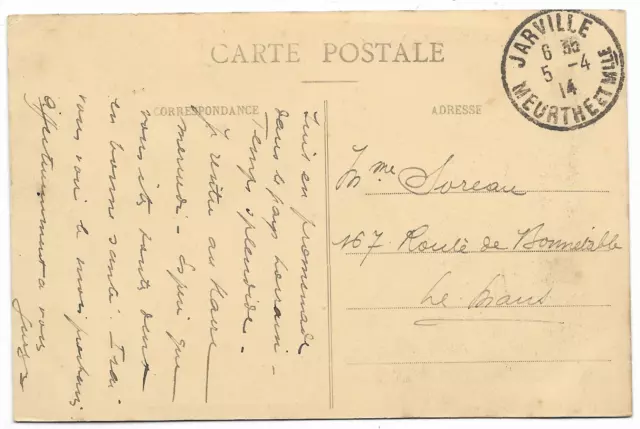 CARTE POSTALE
JARVILLE
6 35
5 -4
14
MEURTHE ET MLLE
CORRESPONDANCE
ADRESSE
Suis en promenade
dans le pays lorrain -
Temps splendide -
Je rentre au Mans
mercredi - Espère que
vous êtes toutes deux
en bonne santé. J'irai
vous voir le mois prochain.
affectueusement à vous
Mme Soreau
167 Route de Bonnétable
Le Mans